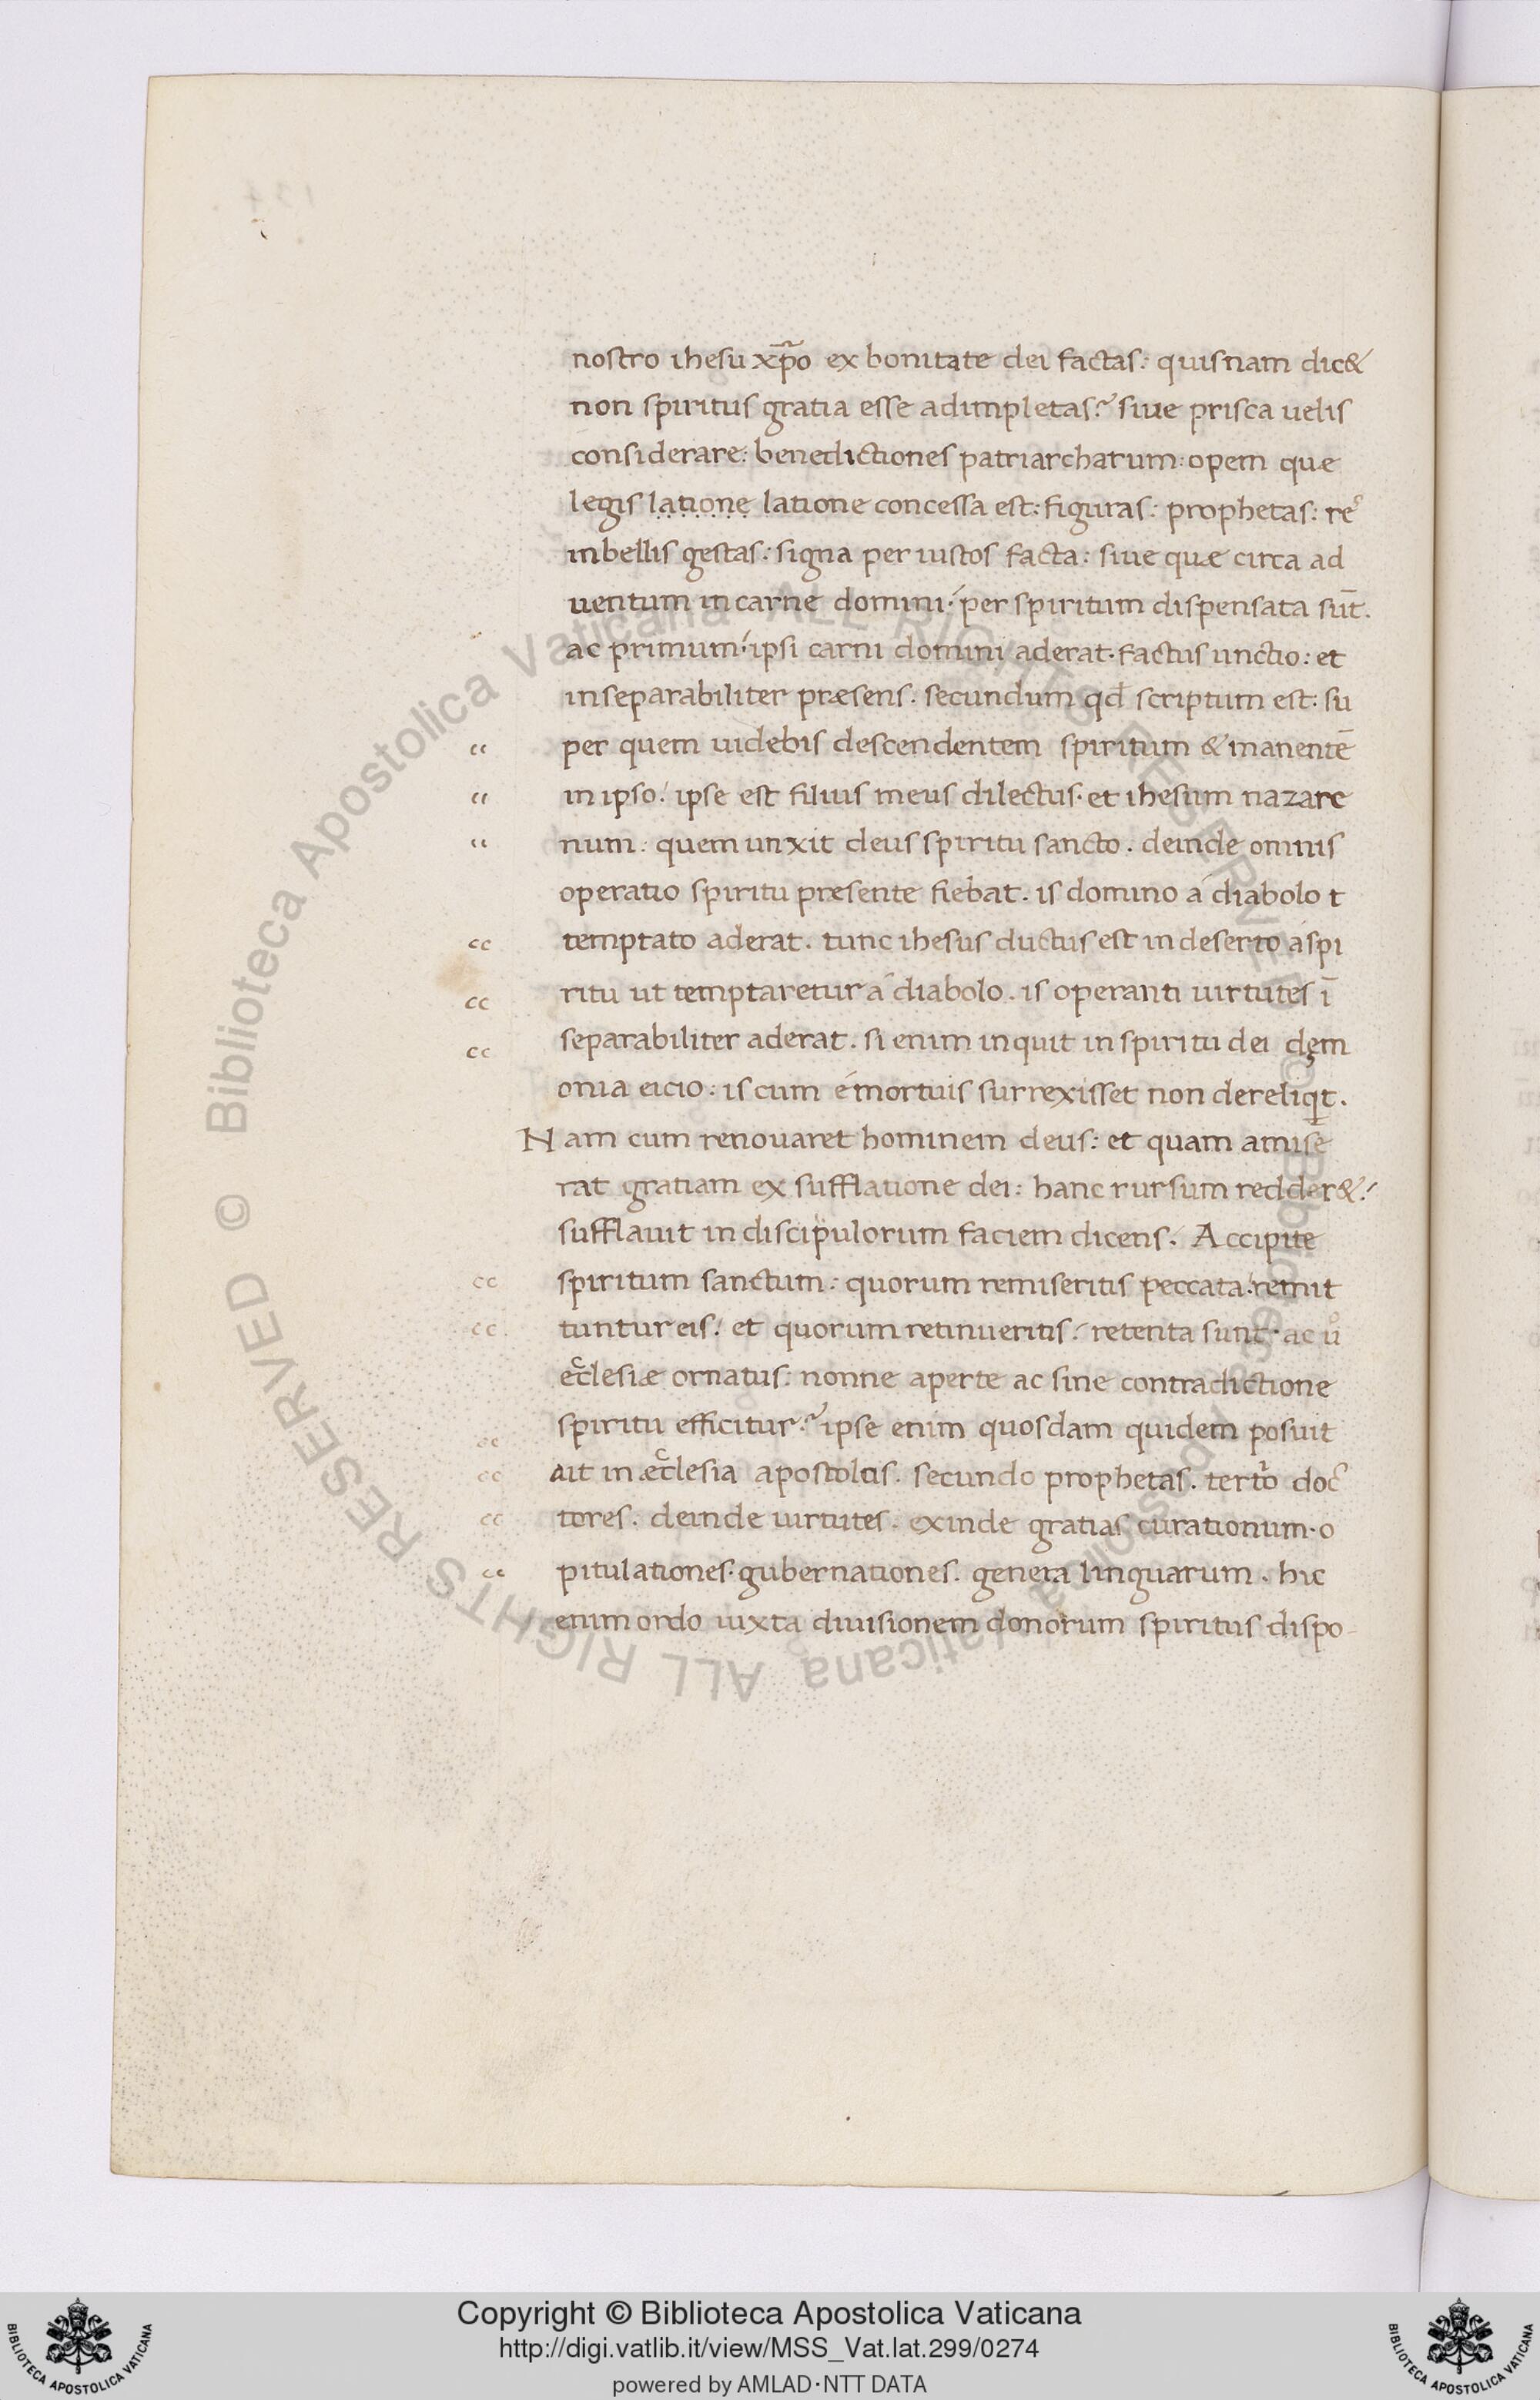 nostro ihesu xp̄o ex bonitate dei factas: quisnam dic&
non spiritus gratia esse adimpletas? siue prisca uelis
considerare: benedictiones patriarcharum: opem quæ
legis latione latione concessa est: figuras: prophetas: re^s
in bellis gestas: signa per iustos facta: siue quæ circa ad
uentum in carne domini: per spiritum dispensata sūt.
ac primum: ipsi carni domini aderat. factus unctio: et
inseparabiliter præsens. secundum qd scriptum est: su
per quem uidebis descendentem spiritum & manentē
in ipso: ipse est filius meus dilectus. et ihesum nazare
num: quem unxit deus spiritu sancto. deinde omnis
operatio spiritu præsente fiebat. is domino á diabolo t
temptato aderat. tunc ihesus ductus est in deserto á spi
ritu ut temptaretur á diabolo. is operanti uirtutes ī
separabiliter aderat. si enim inquit in spiritu dei dęm
onia eicio: is cum é mortuis surrexisset non dereliqit.
Nam cum renouaret hominem deus: et quam amise
rat gratiam ex sufflatione dei: hanc rursum redder&:
sufflauit in discipulorum faciem dicens. Accipite
spiritum sanctum: quorum remiseritis peccata: remit
tuntur eis: et quorum retinueritis: retenta sunt. ac u^o
ecclesiæ ornatus: nonne aperte ac sine contradictione
spiritu efficitur? ipse enim quosdam quidem posuit
ait in æcclesia apostolus. secundo prophetas. tertio doc
tores. deinde uirtutes. exinde gratias curationum. o
pitulationes. gubernationes. genera linguarum. hic
enim ordo iuxta diuisionem donorum spiritus dispo-
Copyright © Biblioteca Apostolica Vaticana
http://digi.vatlib.it/view/MSS_Vat.lat.299/0274
powered by AMLAD·NTT DATA